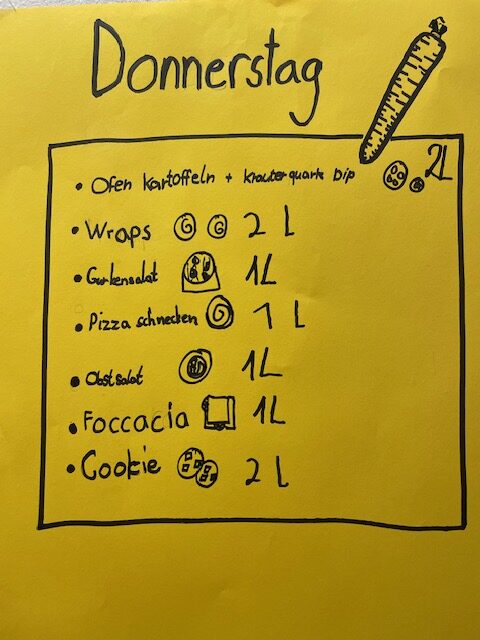 Donnerstag
• Ofen kartoffeln + kräuterquark Dip 2L
• Wraps 2 L
• Gurkensalat 1L
• Pizza schnecken 1 L
• Obstsalat 1L
• Foccacia 1L
• Cookie 2 L